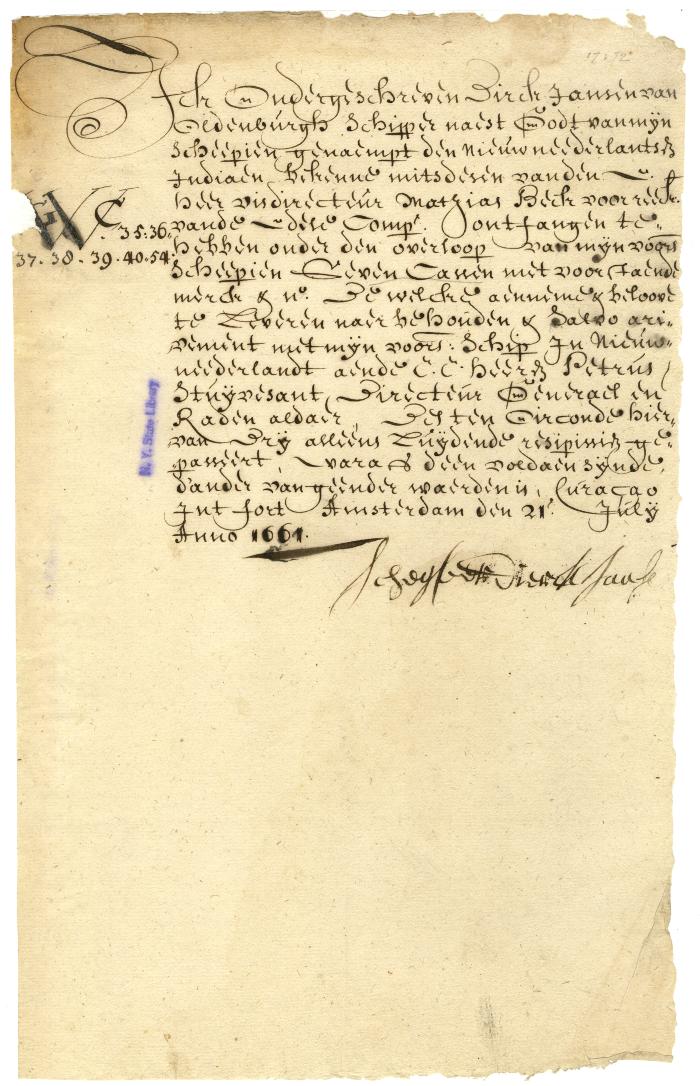 17:72
Ick Ondergeschreven Dirck Jansen van
Oldenburgh Schipper naest Godt van mijn
Scheepien genaempt den Nieuwneederlantsz
Indiaen, Bekenne mitsdesen van den
Heer visdirecteur Matthias Beck voor reeck:
vande Edele Compe. ontfangen te
W C 35·36·
hebben onder den overloop van mijn voors:
37·38·39·40·54·
Scheepien Seven Canen met voorstaende
merck & no. De welcke aenneme & beloove
te Leveren naer behouden & Salvo ari-
vement met mijn voors: Schip In Nieuw-
neederlandt aende E. E. Heer Petrus
Stuyvesant, Directeur Generael en
Raden aldaer, Des ten Oirconde hier-
van Dry alleens Luydende resipissz ge-
passeert, waer af d'een voldaen Zynde,
d'ander van geender waerden is, Curaçao
Int fort Amsterdam den 21e. July
Anno 1661.
Dierck Jans
N. Y. State Library